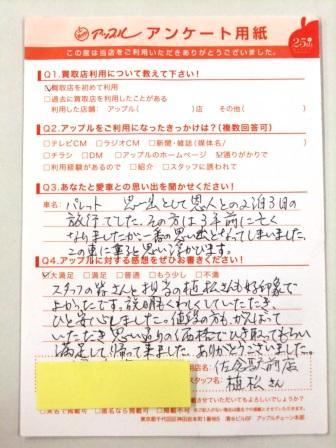 アップル アンケート用紙
25th
この度は当店をご利用いただきありがとうございました。
Q1.買取店利用について教えて下さい!
☑買取店を初めて利用
□過去に買取店を利用したことがある
利用した店舗: アップル( )店 その他( )
Q2.アップルをご利用になったきっかけは?(複数回答可)
□テレビCM □ラジオCM □新聞・雑誌(媒体名/ )
□チラシ □DM □アップルのホームページ ☑通りがかりで
□利用経験があるので □紹介 □スタッフに誘われて
Q3.あなたと愛車との思い出を聞かせください!
車名: パレット 思い出として恩人との2泊3日の
旅行でした。その方は3年前に亡く
なりましたが一番の思い出となってしまいました。
この車に乗ると思い浮かびます。
Q4.アップルに対する感想をぜひお書きください!
☑大満足 □満足 □普通 □もう少し □不満
スタッフの皆さんと担当の植松さんも好印象で
よかったです。説明もくわしくしていただき
ひと安心しました。値段の方も、がんばって
いただき思い通りの価格でひき取ってもらい
満足して帰って来ました。ありがとうございました。
店名: 佐倉駅前店
スタッフ名: 植松さん
ていただいてもよろしいでしょうか?
□実名で掲載可 □匿名なら掲載可 □掲載不可
東京都千代田区神田岩本町1番地5 清水ビル6F アップルチェーン本部